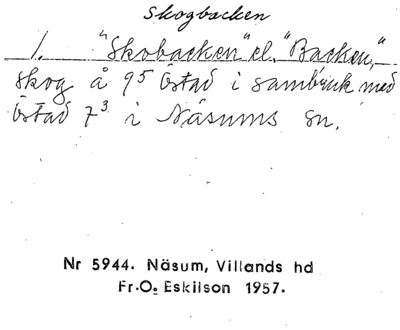 Skogbacken
1. "Skobacken" el. "Backen,"
skog å 9⁵ Östad i sambruk med
Östad 7³ i Näsums sn.
Nr 5944. Näsum, Villands hd
Fr.O. Eskilson 1957.